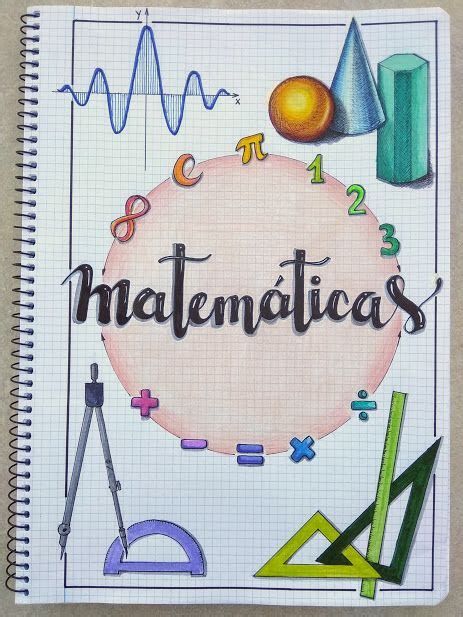 y
x
∞ e π 1 2 3
matemáticas
+ − = × ÷